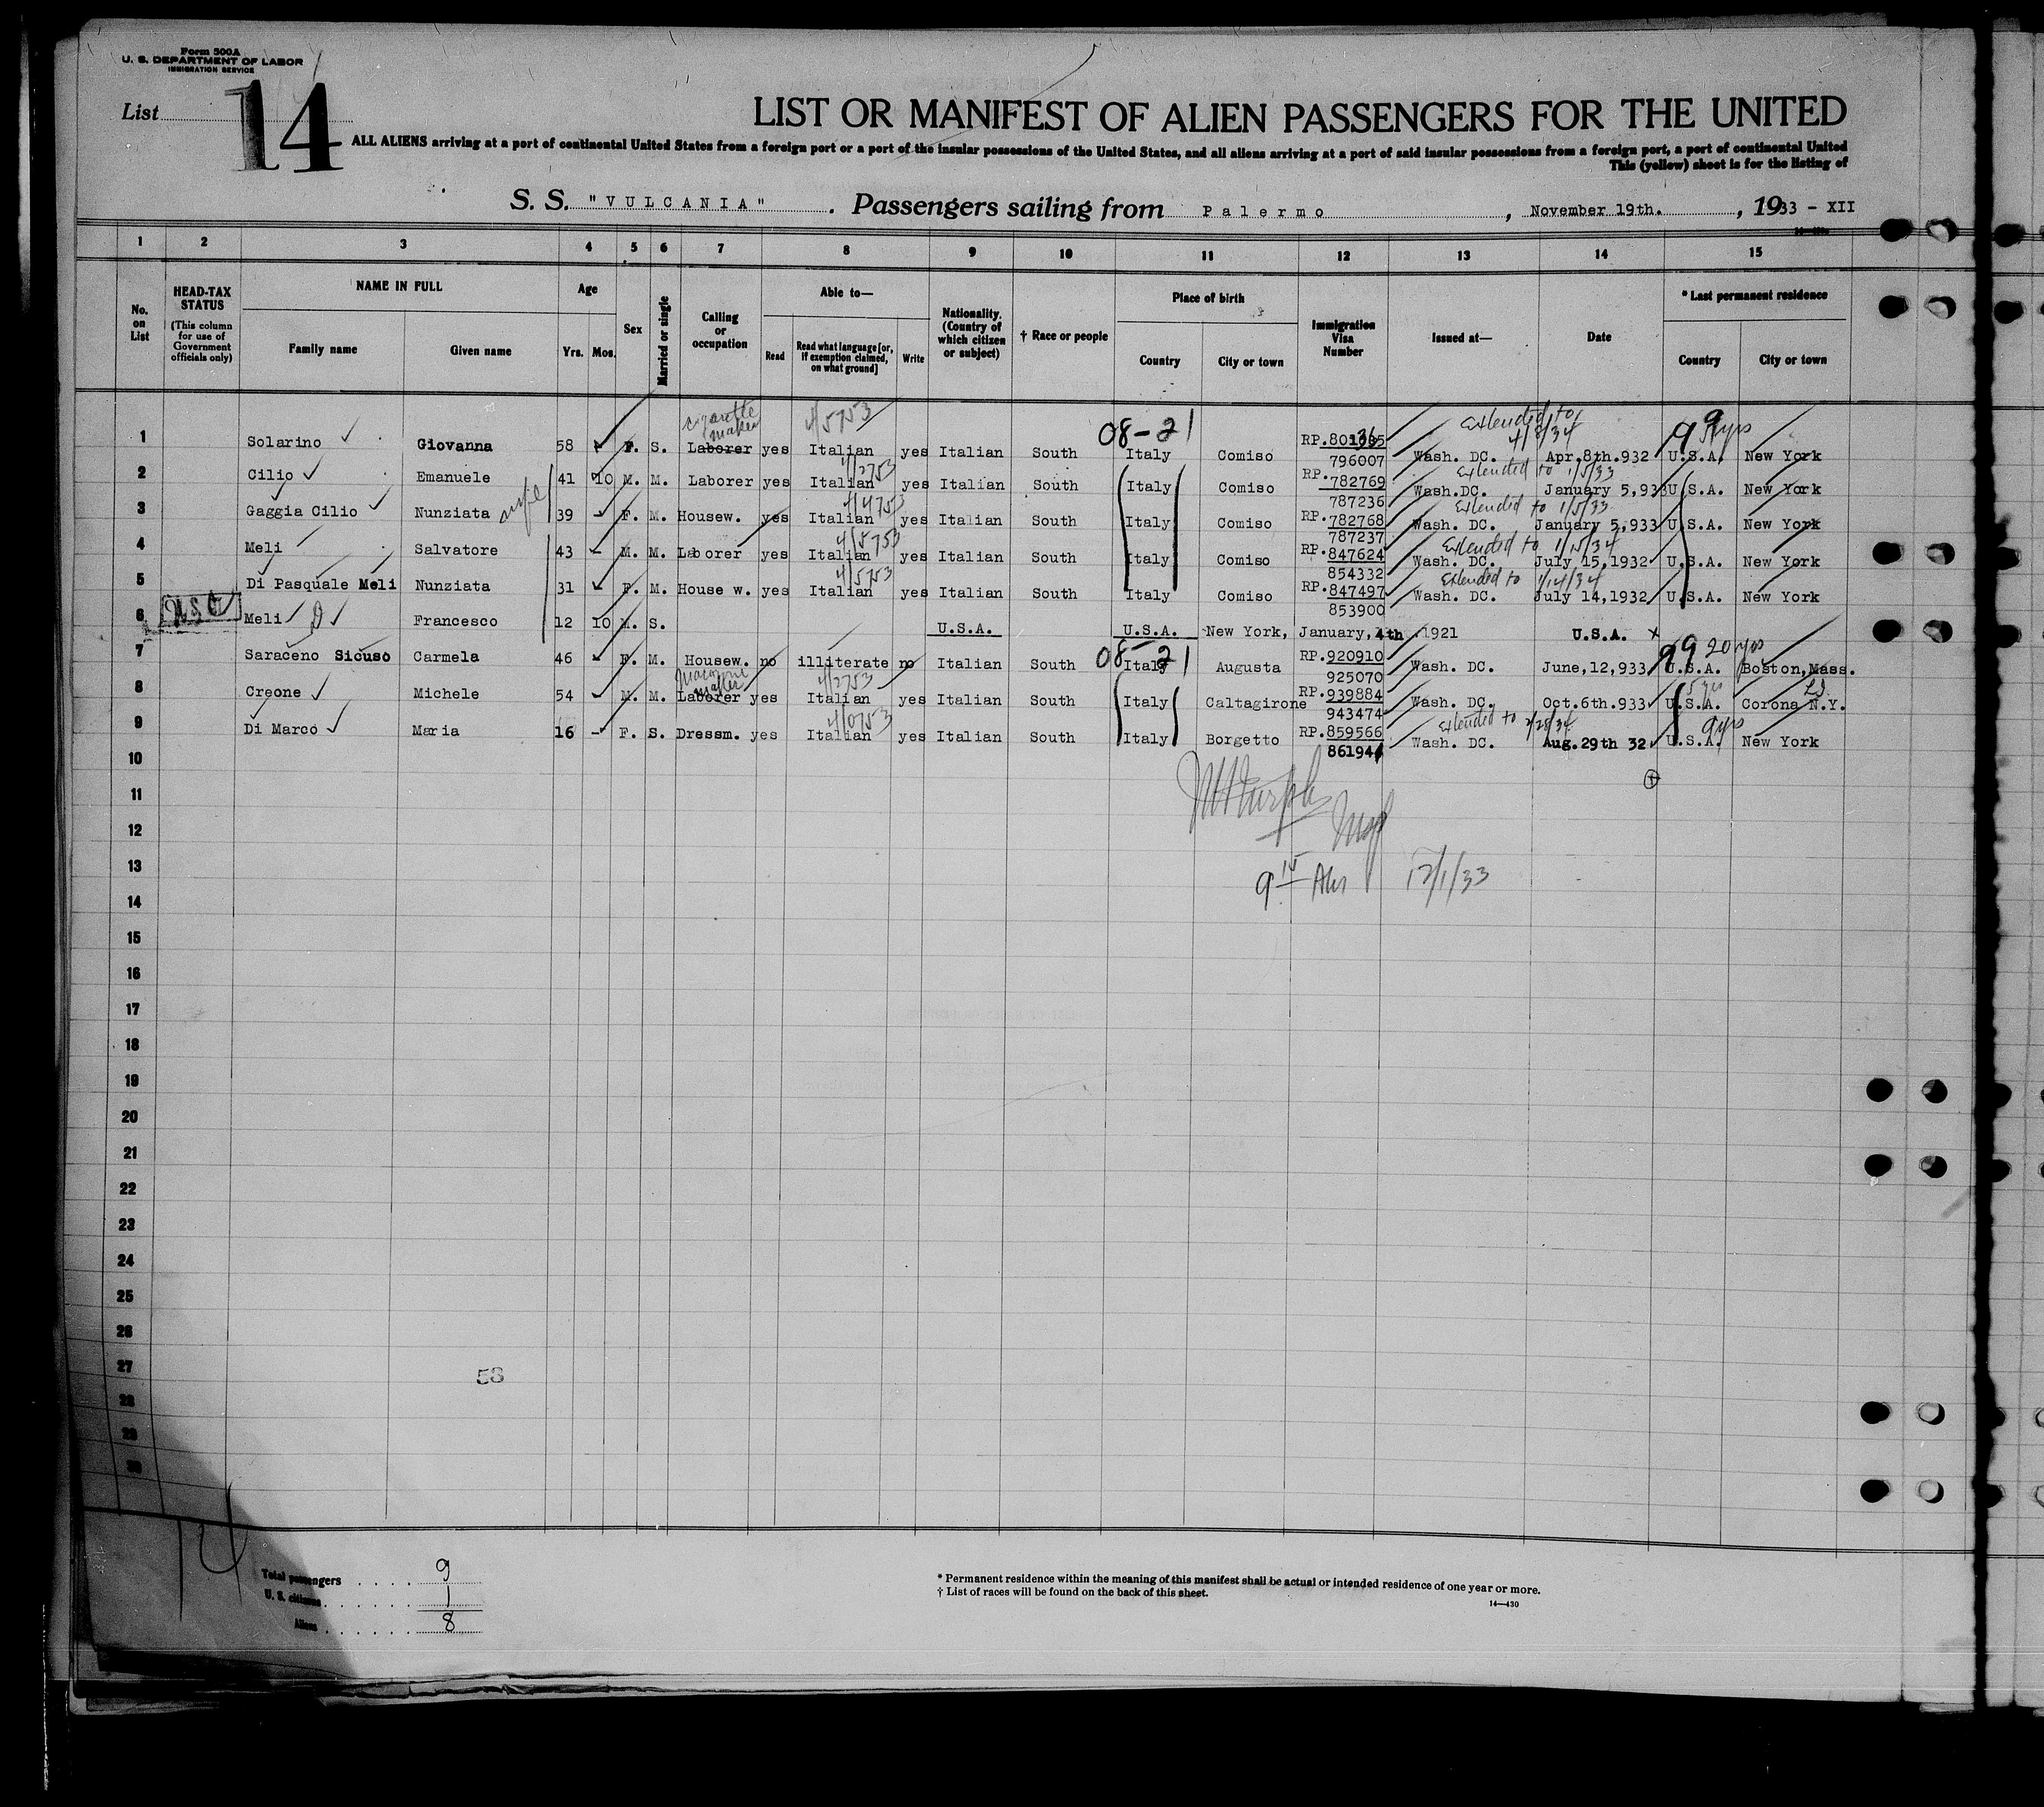 Form 500A
U. S. DEPARTMENT OF LABOR
IMMIGRATION SERVICE
List 14
LIST OR MANIFEST OF ALIEN PASSENGERS FOR THE UNITED
ALL ALIENS arriving at a port of continental United States from a foreign port or a port of the insular possessions of the United States, and all aliens arriving at a port of said insular possessions from a foreign port, a port of continental United
This (yellow) sheet is for the listing of
S. S. "VULCANIA". Passengers sailing from Palermo, November 19th., 1933 - XII
1 2 3 4 5 6 7 8 9 10 11 12 13 14 15
No. on List
HEAD-TAX STATUS (This column for use of Government officials only)
NAME IN FULL
Family name Given name
Age
Yrs. Mos.
Sex
Married or single
Calling or occupation
Able to—
Read
Read what language [or, if exemption claimed, on what ground]
Write
Nationality. (Country of which citizen or subject)
† Race or people
Place of birth
Country City or town
Immigration Visa Number
Issued at—
Date
* Last permanent residence
Country City or town
cigarette maker 4/5753 08-21 Extended to 4/8/34 99 9 yrs
1 Solarino Giovanna 58 F. S. Laborer yes Italian yes Italian South Italy Comiso RP. 796007 Wash. DC. Apr.8th.932 U.S.A. New York
4/2753 Extended to 1/5/33
2 Cilio Emanuele 41 10 M. M. Laborer yes Italian yes Italian South Italy Comiso RP.782769 787236 Wash.DC. January 5,933 U.S.A. New York
4/4753 Extended to 1/5/33
3 Gaggia Cilio Nunziata 39 - F. M. Housew. yes Italian yes Italian South Italy Comiso RP.782768 787237 Wash. DC. January 5,933 U.S.A. New York
4/5753 Extended to 1/15/34
4 Meli Salvatore 43 - M. M. Laborer yes Italian yes Italian South Italy Comiso RP.847624 854332 Wash. DC. July 15,1932 U.S.A. New York
4/5753 Extended to 1/14/34
5 Di Pasquale Meli Nunziata 31 F. M. House w. yes Italian yes Italian South Italy Comiso RP.847497 853900 Wash. DC. July 14,1932 U.S.A. New York
6 U.S.C. Meli Francesco 12 10 M. S. U.S.A. U.S.A. New York, January, 4th .1921 U.S.A. x
08-21 99 20 yrs
7 Saraceno Sicuso Carmela 46 - F. M. Housew. no illiterate no Italian South Italy Augusta RP.920910 925070 Wash. DC. June,12,933 U.S.A. Boston,Mass.
4/2753 5 yrs L.I.
8 Creone Michele 54 M. M. Laborer yes Italian yes Italian South Italy Caltagirone RP.939884 943474 Wash. DC. Oct.6th.933 U.S.A. Corona N.Y.
4/0753 Extended to 2/28/34 9 yrs
9 Di Marco Maria 16 - F. S. Dressm. yes Italian yes Italian South Italy Borgetto RP.859566 Wash. DC. Aug.29th 32 U.S.A. New York
10
11
12
13 9 15 12/1/33
14
15
16
17
18
19
20
21
22
23
24
25
26
27 53
28
29
30
14
Total passengers . . . . 9
U. S. citizens . . . . . . 1
Aliens . . . . . . 8
* Permanent residence within the meaning of this manifest shall be actual or intended residence of one year or more.
† List of races will be found on the back of this sheet.
14—430